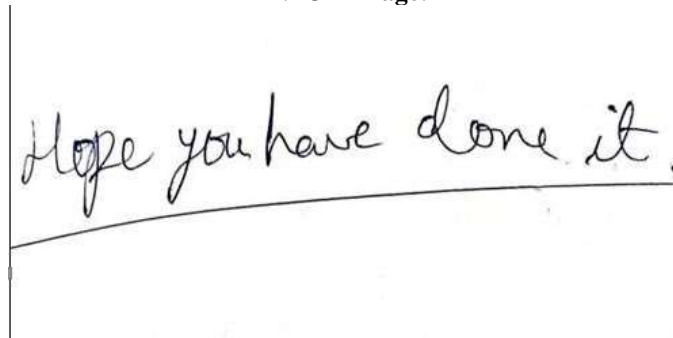 Hope you have done it.